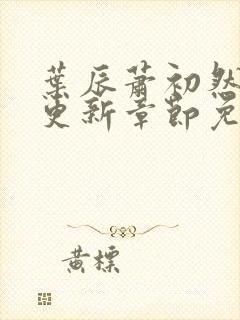 葉辰蕭初然
更新章節免
黃標